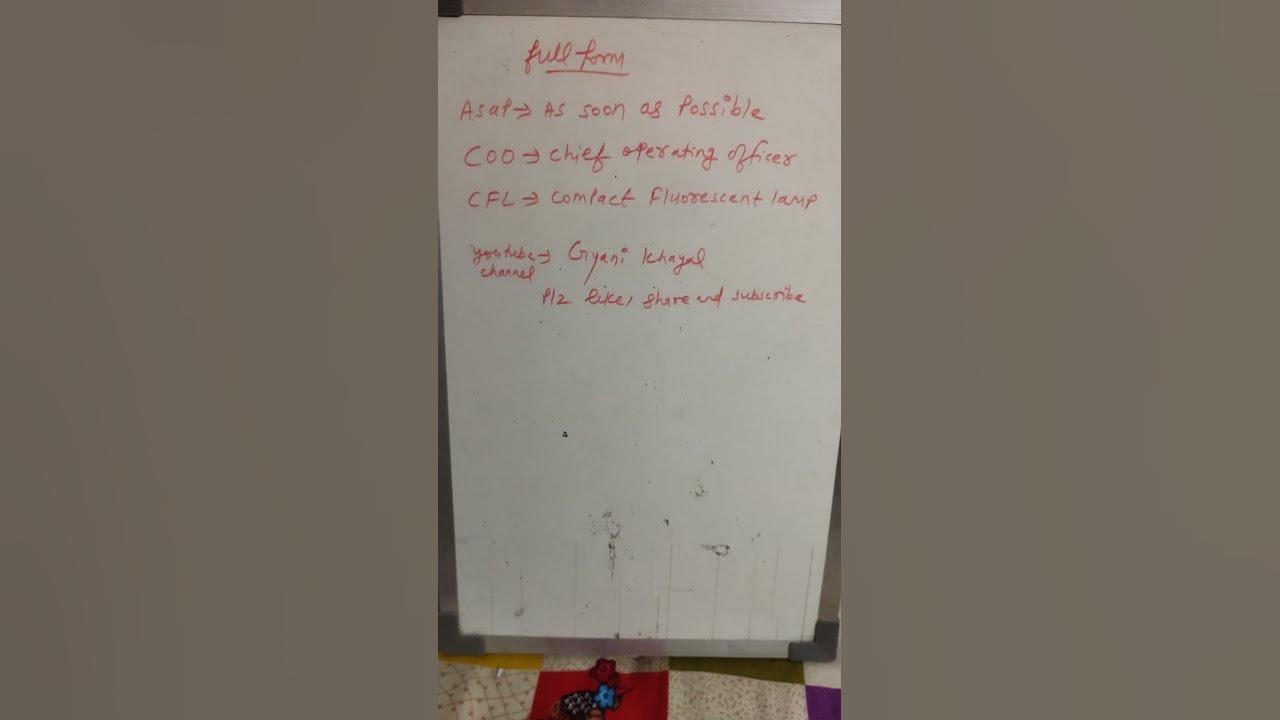 full form
Asap → As soon as Possible
COO → chief operating officer
CFL → Compact Fluorescent lamp
youtube → Gyani khayal
channel
Plz like, share and subscribe